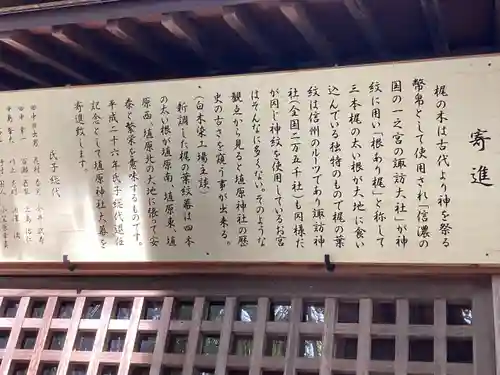 寄進
梶の木は古代より神を祭る
幣帛として使用され「信濃の
国の一之宮の諏訪大社」が神
紋に用い「根あり梶」と称して
三本梶の太い根が大地に食い
込んでいる独特のもので梶の葉
紋は信州のルーツであり諏訪神
社（全国二万五千社）も同様だ
が同じ神紋を使用しているお宮
はそんなに多くない。そのような
観点から見ると埴原神社の歴
史の古さを窺う事が出来る。
（白木染工場主談）
新調した梶の葉紋幕は四本
の太い根が埴原南、埴原東、埴
原西、埴原北の大地に張って安
泰と繁栄を意味するものです。
平成二十六年氏子総代退任
記念として埴原神社大幕を
寄進致します。
氏子総代